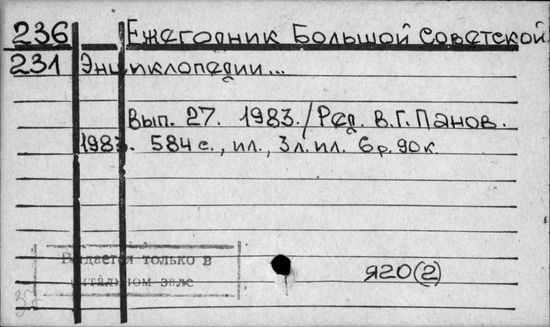 236 Ежегодник Большой Советской
231 Энциклопедии...
Вып. 27. 1983. / Ред. В.Г. Панов.
1983. 584 с., ил., 3 л. ил. 6 р. 90 к.
Выдается только в
читальном зале
Я20(2)